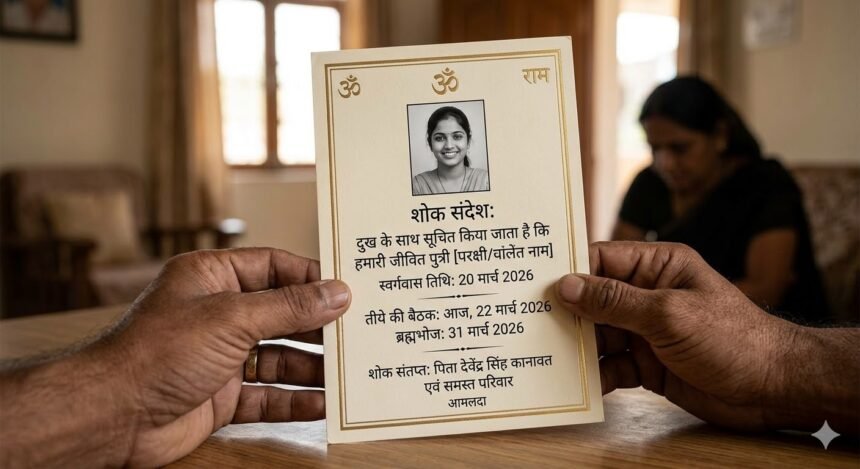 ॐ ॐ राम
शोक संदेश:
दुख के साथ सूचित किया जाता है कि
हमारी जीवित पुत्री [परक्षी/ नाम]
स्वर्गवास तिथि: 20 मार्च 2026
तीये की बैठक: आज, 22 मार्च 2026
ब्रह्मभोज: 31 मार्च 2026
शोक संतप्त: पिता देवेंद्र सिंह कानावत
एवं समस्त परिवार
आमलदा